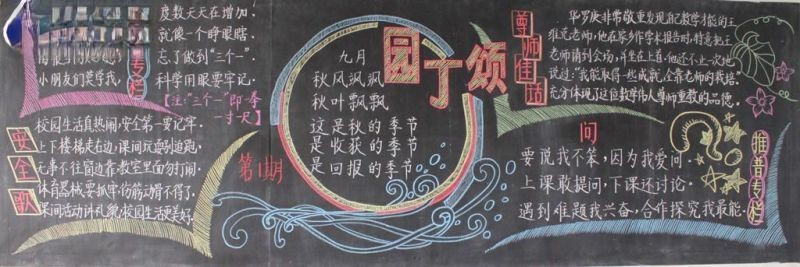 度数天天在增加.
就像一个睁眼瞎.
忘了做到“三个一”.
小朋友们要学我,
科学用眼要牢记.
【注:“三个一”即:拳
一寸尺】
专栏
安全歌
校园生活真热闹,安全第一要记牢.
上下楼梯走右边,课间玩耍别追跑,
无事不往窗边靠,教室里面勿打闹.
体育器械要抓牢,伤筋动骨不得了.
课间活动讲礼貌,校园生活更美好.
第1期
园丁颂
九月
秋风飒飒
秋叶飘飘
这是秋的季节
是收获的季节
是回报的季节
尊师佳话
华罗庚非常敬重发现自己数学才能的王
维克老师,他在家乡作学术报告时,特意把王
老师请到会场,并坐在上首,他还不止一次地
说过:“我能取得一些成就,全靠老师的栽培.”
充分体现了这位数学伟人尊师重教的品德.
问
要说我不笨,因为我爱问.
上课敢提问,下课还讨论.
遇到难题我兴奋,合作探究我最能.
推普专栏